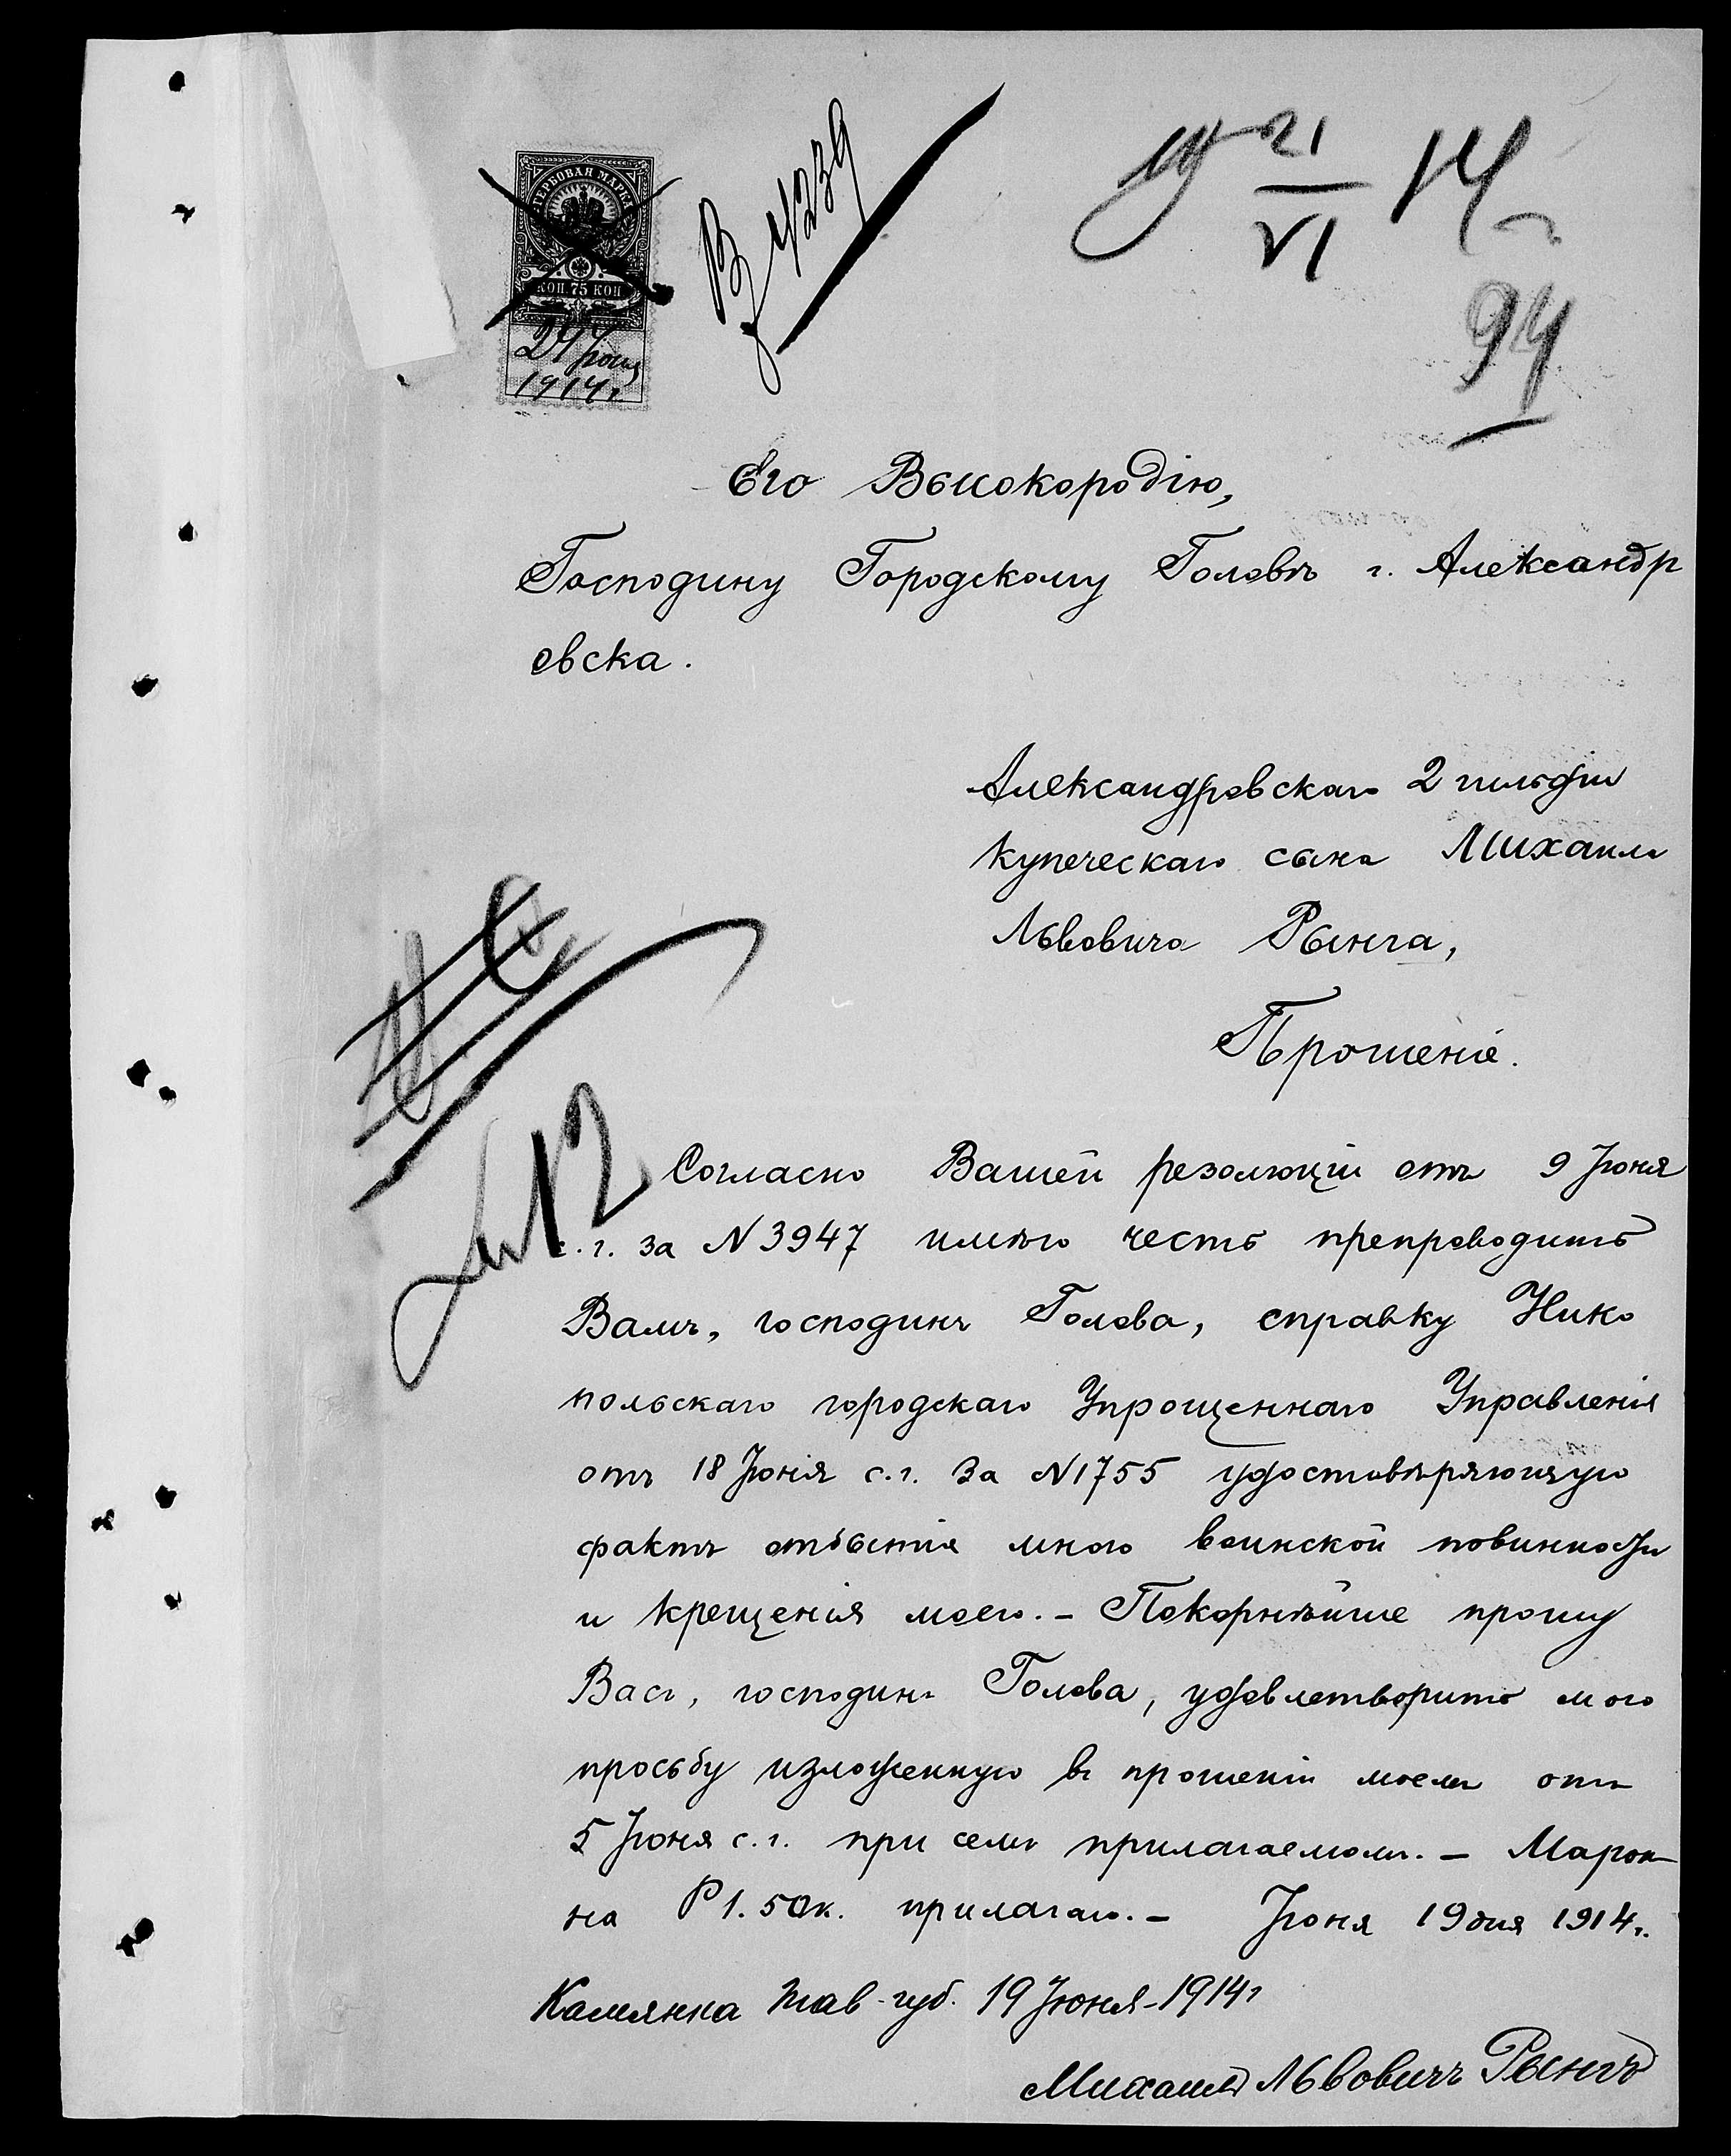 ГЕРБОВАЯ МАРКА
КОП. 75 КОП
1914 г.
21
VI 14
94
Его Высокородію,
Господину Городскому Головѣ г. Александр
овска.
Александровскаго 2 гильдіи
купеческаго сына Михаила
Львовича Рынга,
Прошеніе.
12
Согласно Вашей резолюціи отъ 9 Іюня
с. г. за N 3947 имѣю честь препроводить
Вамъ, господинъ Голова, справку Нико
польскаго городскаго Упрощеннаго Управленія
отъ 18 Іюня с. г. за N 1755 удостовѣряющую
фактъ отбытія мною воинской повинности
и крещенія моего. – Покорнѣйше прошу
Васъ, господинъ Голова, удовлетворить мою
просьбу изложенную въ прошеніи моемъ отъ
5 Іюня с. г. при семъ прилагаемомъ. – Марок
на Р 1. 50к. прилагаю. – Іюня 19 дня 1914 г.
Камянка Тав. губ. 19 Іюня – 1914 г
Михаилъ Львовичъ Рынгъ